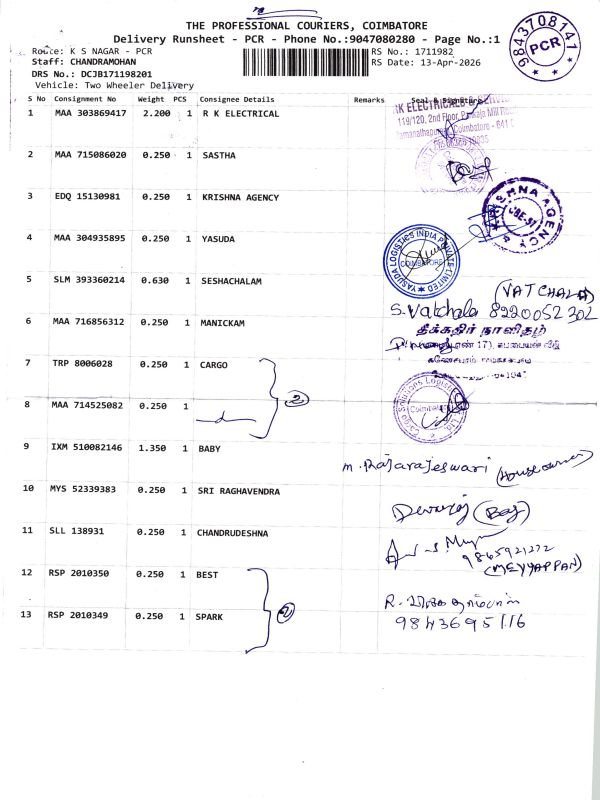 THE PROFESSIONAL COURIERS, COIMBATORE
Delivery Runsheet - PCR - Phone No.:9047080280 - Page No.:1
Route: K S NAGAR - PCR
RS No.: 1711982
Staff: CHANDRAMOHAN
RS Date: 13-Apr-2026
DRS No.: DCJB171198201
Vehicle: Two Wheeler Delivery
9843708141
PCR
S No Consignment No Weight PCS Consignee Details Remarks Seal & Signature
1 MAA 303869417 2.200 1 R K ELECTRICAL
RK ELECTRICALS &
119/120, 2nd Floor, Pankaja Mill Road
Ramanathapuram, Coimbatore - 641
2 MAA 715086020 0.250 1 SASTHA
3 EDQ 15130981 0.250 1 KRISHNA AGENCY
KRISHNA AGENCY
CBE-37
4 MAA 304935895 0.250 1 YASUDA
YASUDA LOGISTICS INDIA PRIVATE LIMITED
COIMBATORE
5 SLM 393360214 0.630 1 SESHACHALAM
(VATCHALA)
S. Vatchala 8220052302
6 MAA 716856312 0.250 1 MANICKAM
தீக்கதிர் நாளிதழ்
7 TRP 8006028 0.250 1 CARGO
8 MAA 714525082 0.250 1
2
Cargo Solutions Logistics
Coimbatore
9 IXM 510082146 1.350 1 BABY
M. Rajarajeswari (House owner)
10 MYS 52339383 0.250 1 SRI RAGHAVENDRA
Devaraj
11 SLL 138931 0.250 1 CHANDRUDESHNA
9865921272
(MEYYAPPAN)
12 RSP 2010350 0.250 1 BEST
13 RSP 2010349 0.250 1 SPARK
2
9843695116